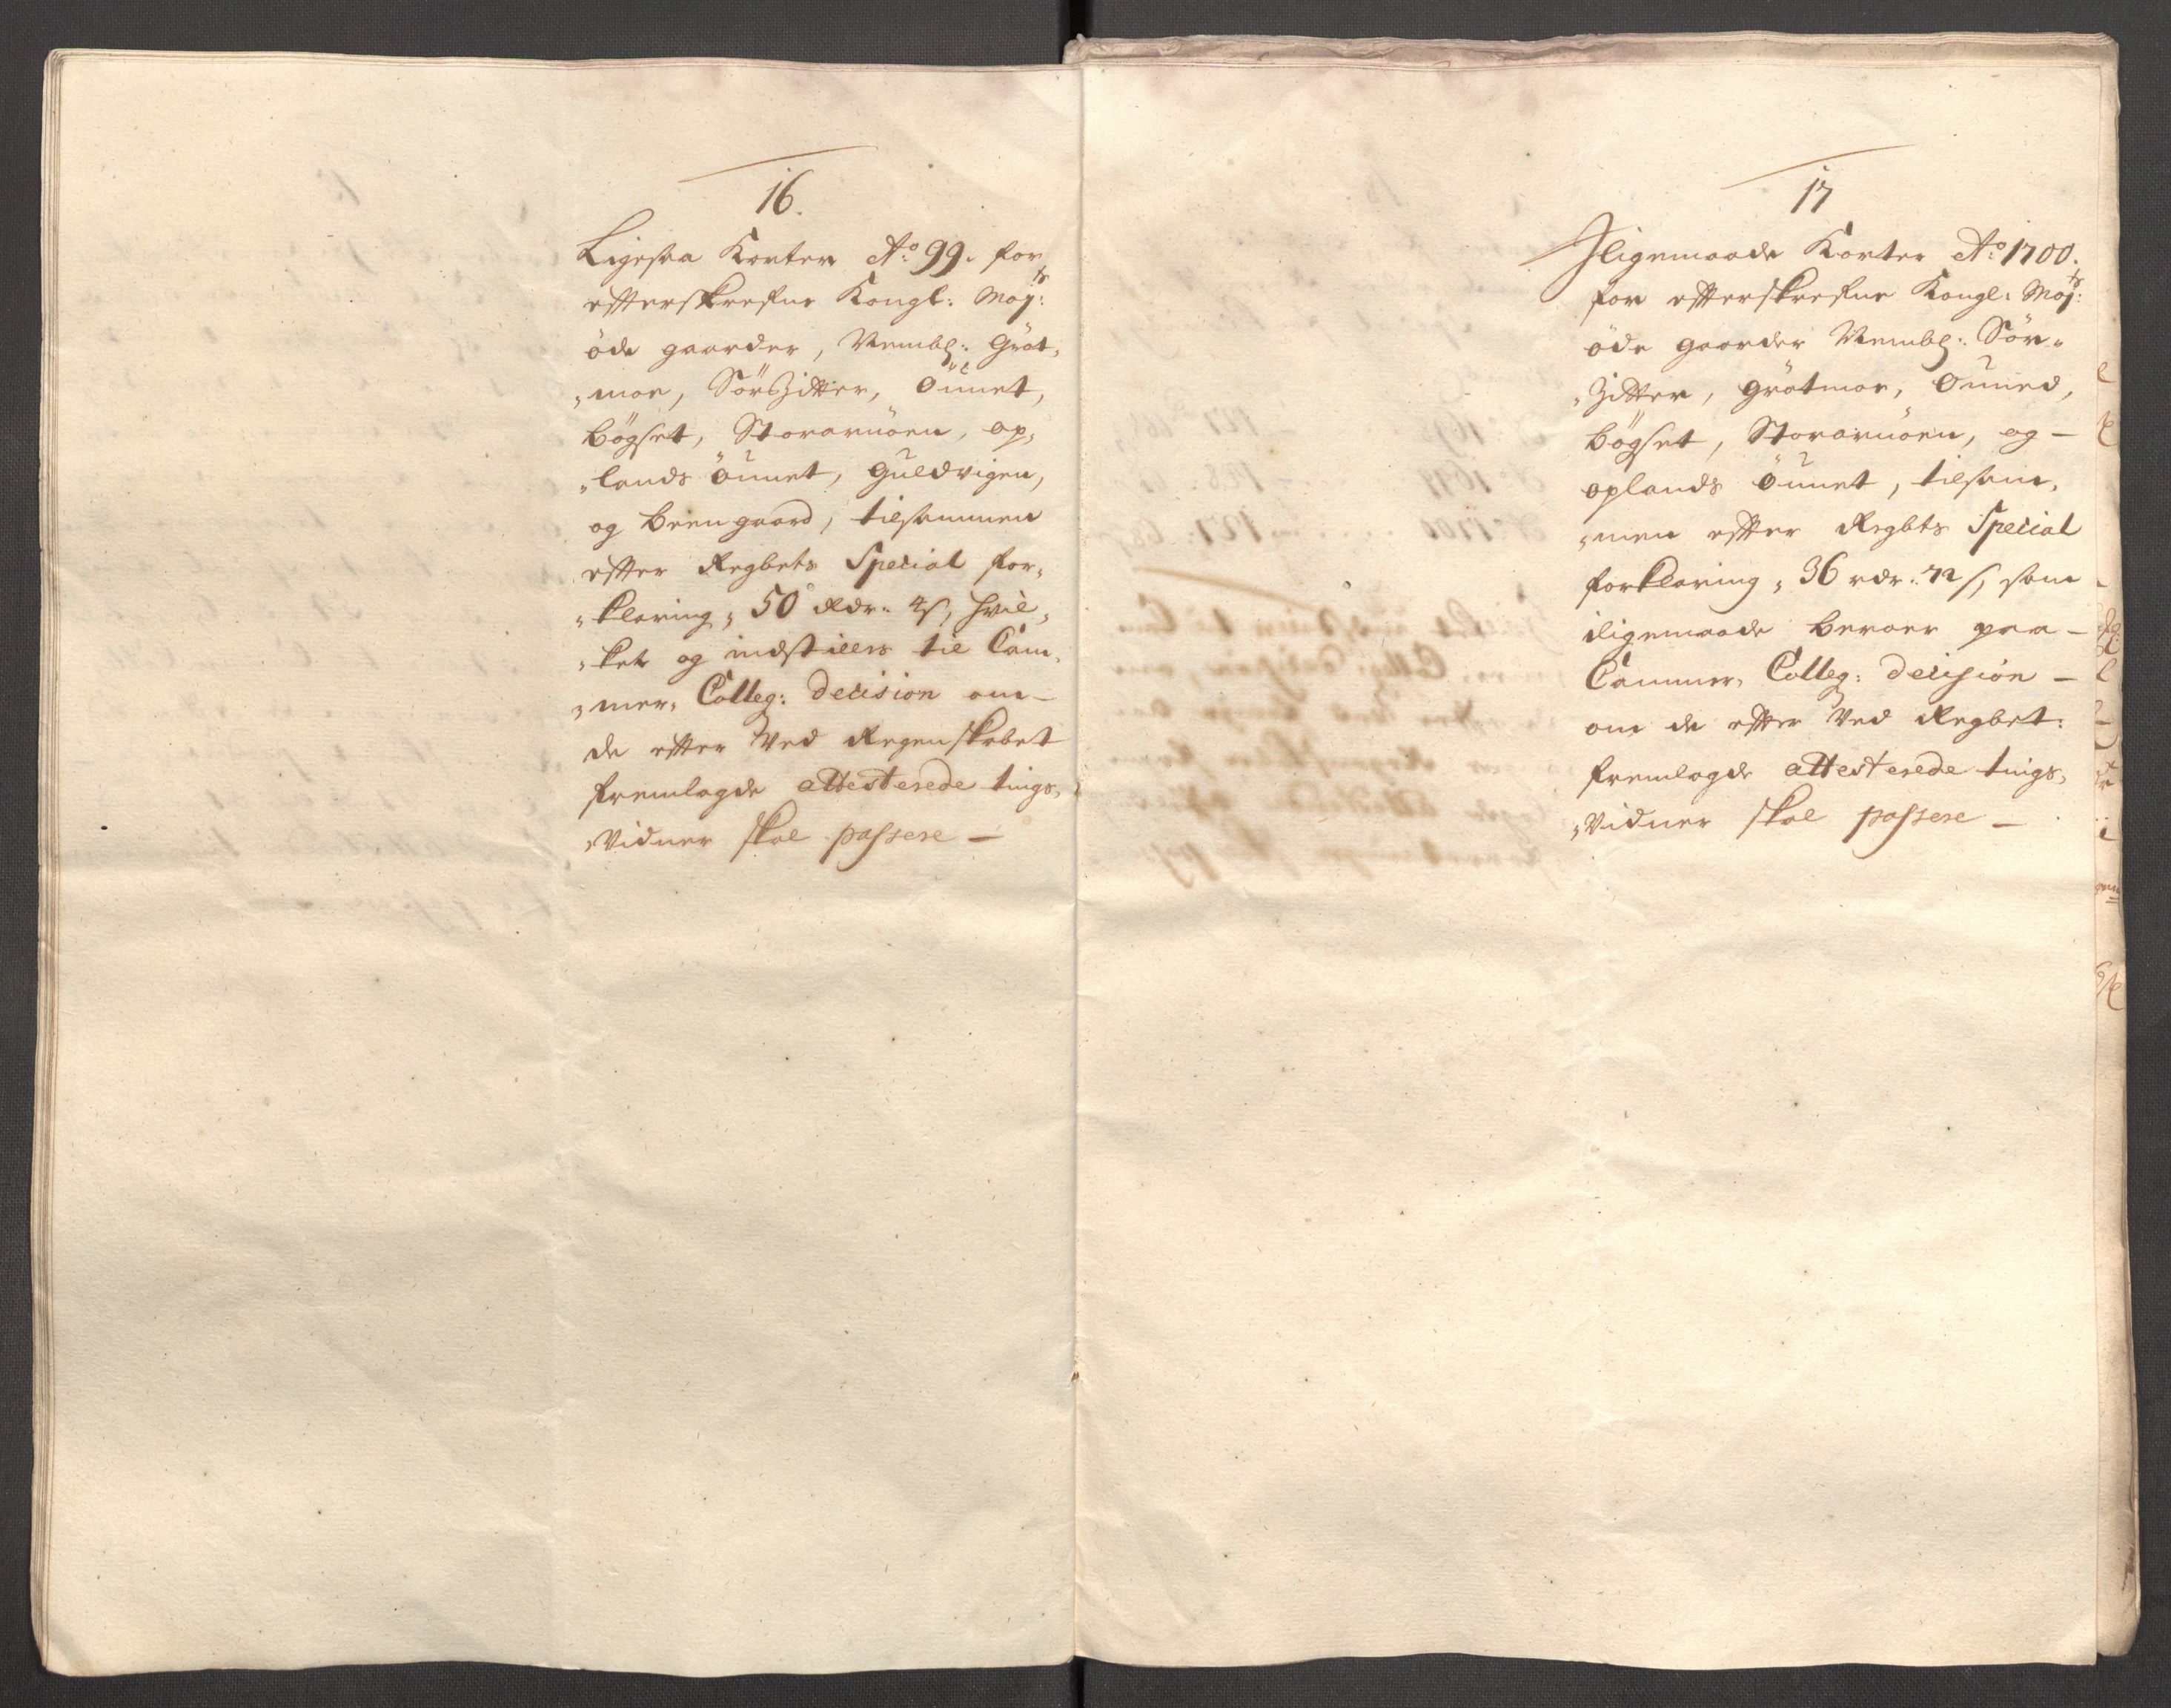 16.
Ligesaa Korter Ao. 99. for
effterskrefne Kongl: Maj:ts
öde gaarder, Nembl: Gröt,
„moe, Sörszitter, Öunet,
Bögset, Storaruöen, op,
„lands öunet, Guldvigen,
og Beengaard, tilsammen
effter Regbets Special for,
„klaring, 50 Rdr. 4 s, hvil,
„ket og indstilles til Cam,
„mer, Colleg: Decision om —
de effter ved Regenskabet
fremlagde attesterede tings,
„vidner skal passere —
17
Iligemaade Korter Ao. 1700.
for effterskrefne Kongl: Maj:ts
öde gaarder Nembl: Sör„
„zitter, grötmoe, Ouned,
Bögset, Storaruöen, og —
oplands Öunet, tilsam,
„men effter Regbts Special
forklaring, 36 rdr. 72 s, som
iligemaade beroer paa —
Cammer, Colleg: Decision —
om de effter ved Regbet:
fremlagde attesterede tings,
„vidner skal passere —